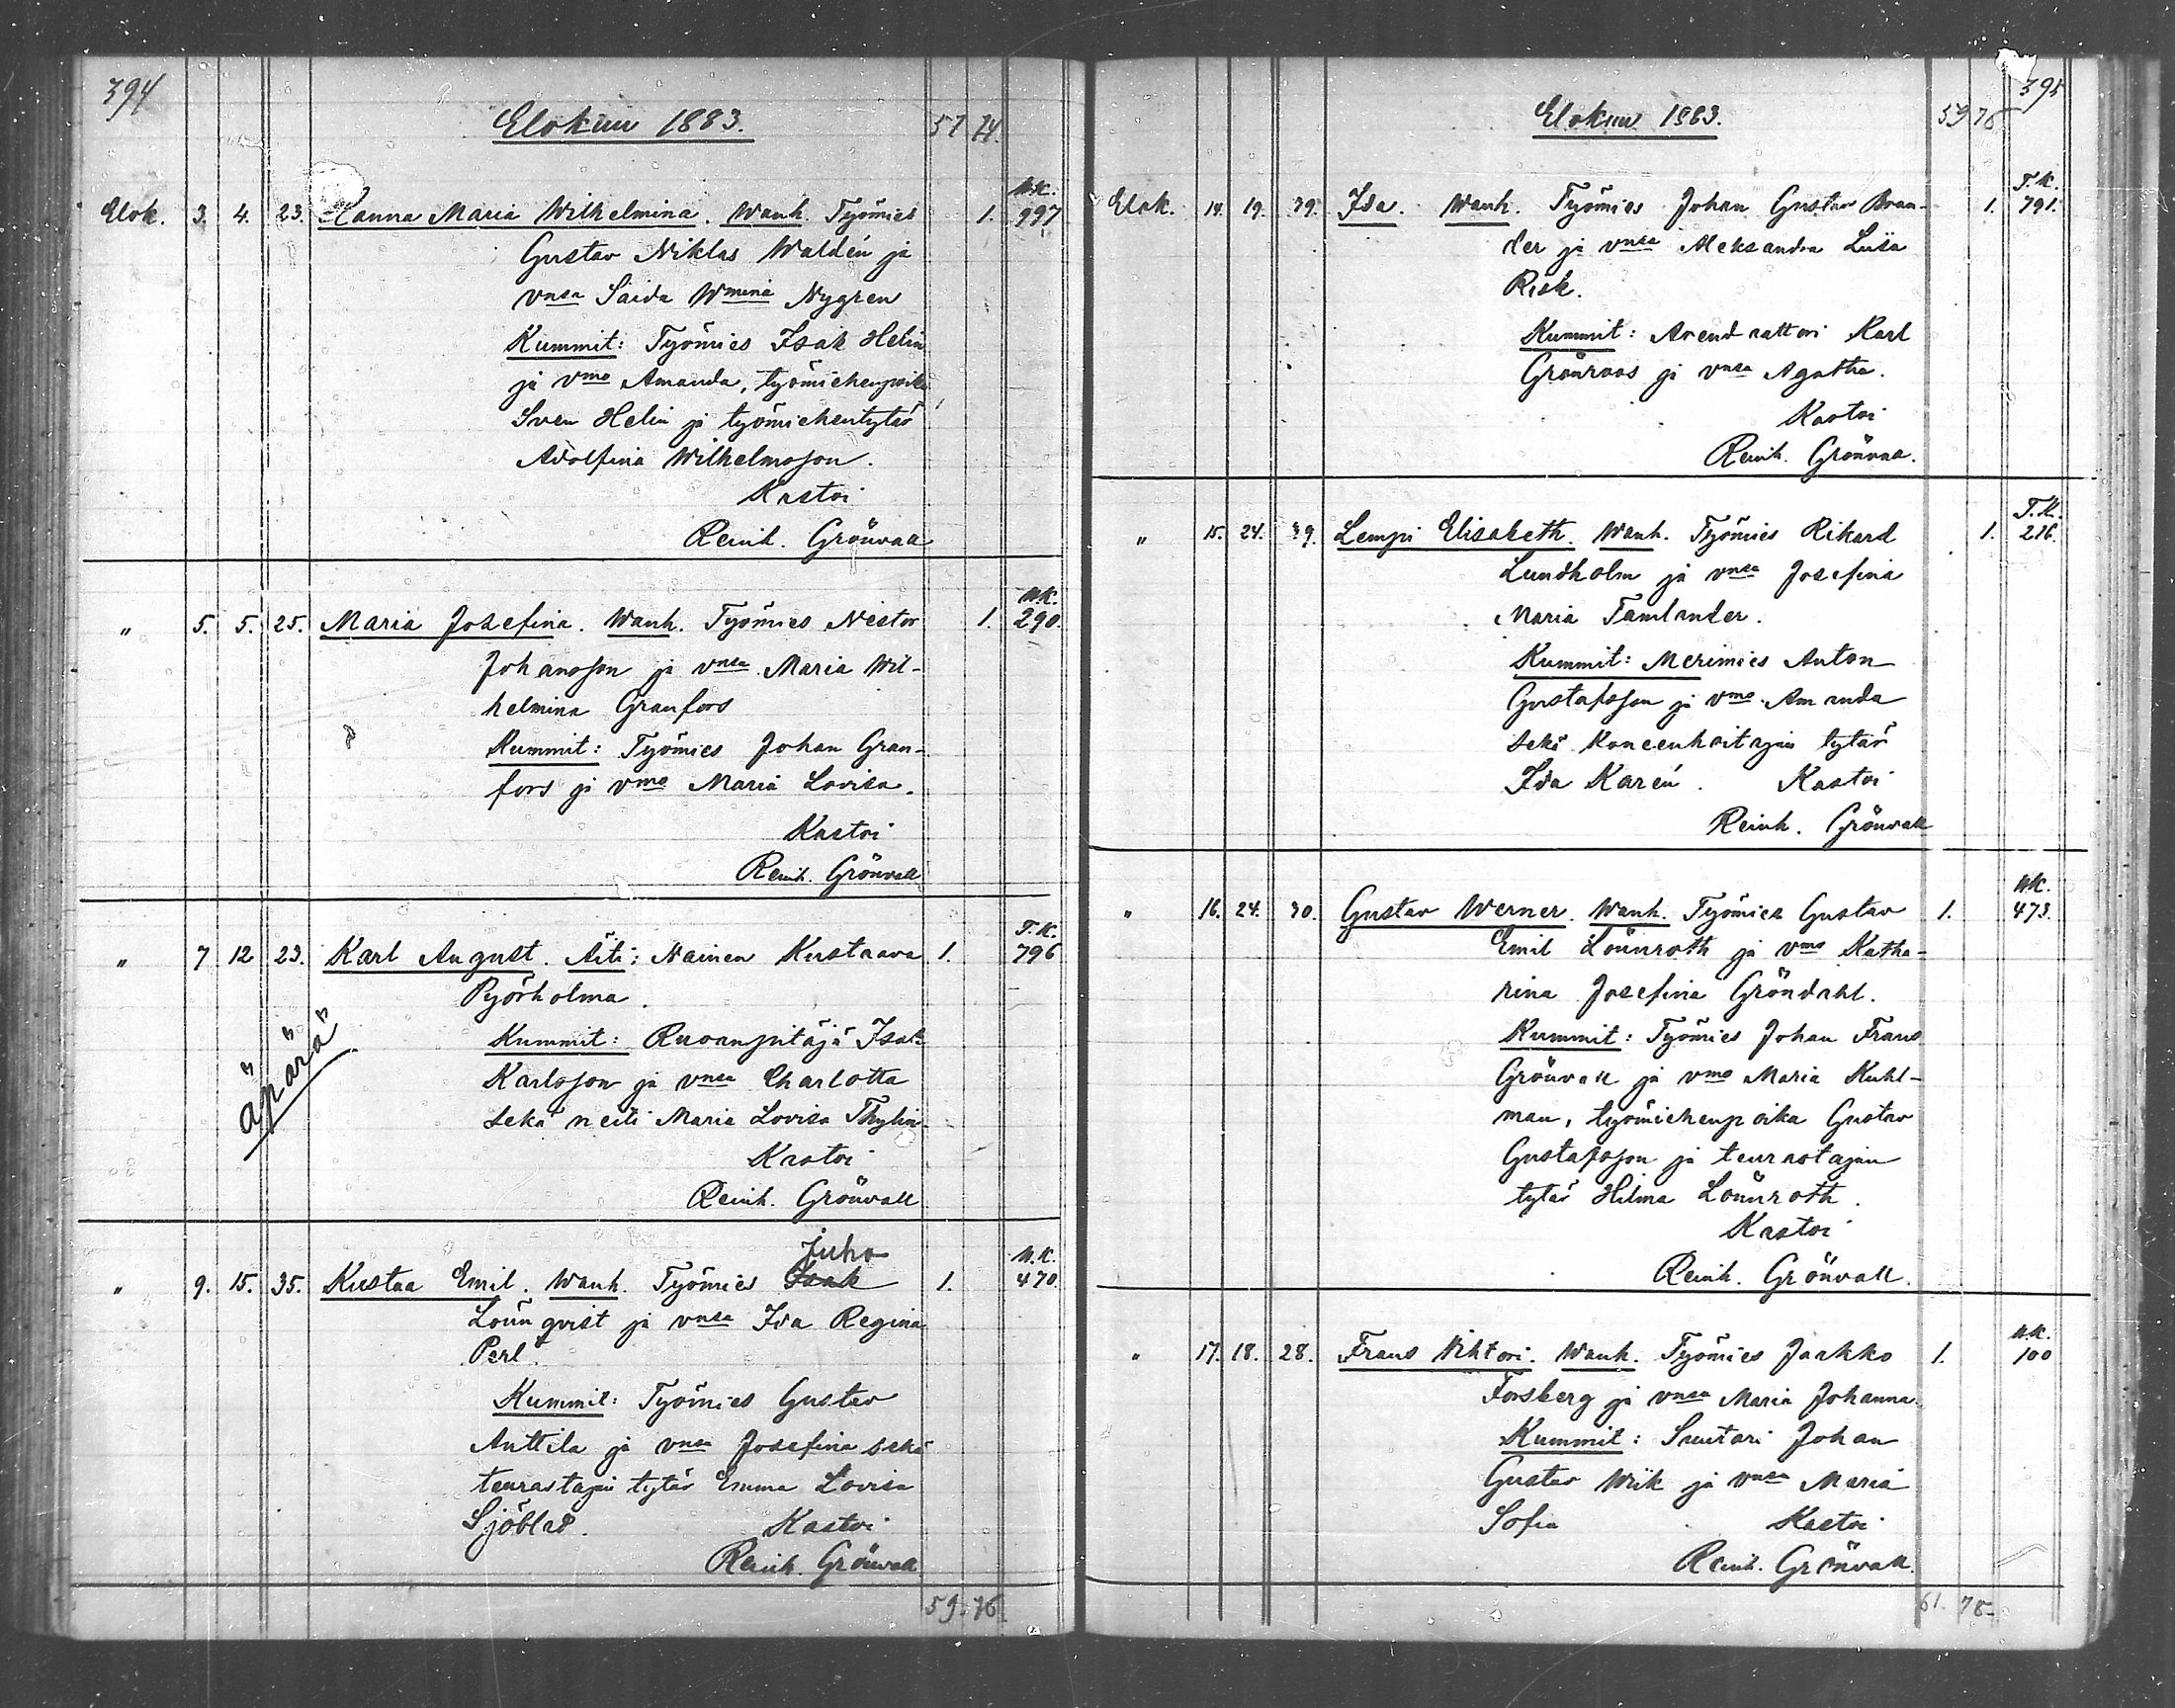 394
Elokuu 1883. 57 74.
N.K.
Elok. 3. 4. 23. Hanna Maria Wilhelmina. Wanh. Työmies 1. 997
Gustav Niklas Waldén ja
vnsa Saida Wmina Nygren
Kummit: Työmies Isak Helin
ja vmo Amanda, työmiehenpoika
Sven Helin ja työmiehentytär
Adolfina Wilhelmsson.
Kastoi
Reinh. Grönvall
N.K.
" 5. 5. 25. Maria Josefina. Wanh. Työmies Nestor 1. 290.
Johansson ja vnsa Maria Wil-
helmina Granfors
Kummit: Työmies Johan Gran-
fors ja vmo Maria Lovisa.
Kastoi
Reinh. Grönvall
T.K.
" 7 12 23. Karl August. Äiti: Nainen Kustaava 1. 796
Pyörholma.
"äpärä"
Kummit: Ruoanpitäjä Isak
Karlsson ja vnsa Charlotta
sekä neiti Maria Lovisa Thylin
Kastoi
Reinh. Grönvall
Juho
N.K.
" 9. 15. 35. Kustaa Emil. Wanh. Työmies Isak 1. 470.
Lönnqvist ja vnsa Ida Regina
Perl.
Kummit: Työmies Gustav
Anttila ja vnsa Josefina sekä
teurastajan tytär Emma Lovisa
Sjöblad. Kastoi
Reinh. Grönvall
59. 76.
395
Elokuu 1883. 59 76
T.K.
Elok. 14. 19. 39. Ida. Wanh. Työmies Johan Gustav Bran- 1. 791.
der ja vnsa Aleksandra Luisa
Risk.
Kummit: Arendraattori Karl
Grönroos ja vnsa Agatha.
Kastoi
Reinh. Grönvall.
T.K.
" 15. 24. 39. Lempi Elisabeth. Wanh. Työmies Rikard 1. 216.
Lundholm ja vnsa Josefina
Maria Tamlander.
Kummit: Merimies Anton
Gustafsson ja vmo Amanda
sekä koneenhoitajan tytär
Ida Karén. Kastoi
Reinh. Grönvall
N.K.
" 16. 24. 30. Gustav Werner. Wanh. Työmies Gustav 1. 473.
Emil Lönnroth ja vmo Katha-
rina Josefina Gröndahl.
Kummit: Työmies Johan Frans
Grönvall ja vmo Maria Kuhl-
man, työmiehenpoika Gustav
Gustafsson ja teurastajan
tytär Hilma Lönnroth.
Kastoi
Reinh. Grönvall.
N.K.
" 17. 18. 28. Frans Wihtori. Wanh. Työmies Jaakko 1. 100
Forsberg ja vnsa Maria Johanna.
Kummit: Suutari Johan
Gustav Wiik ja vnsa Maria
Sofia Kastoi
Reinh. Grönvall.
61. 78.